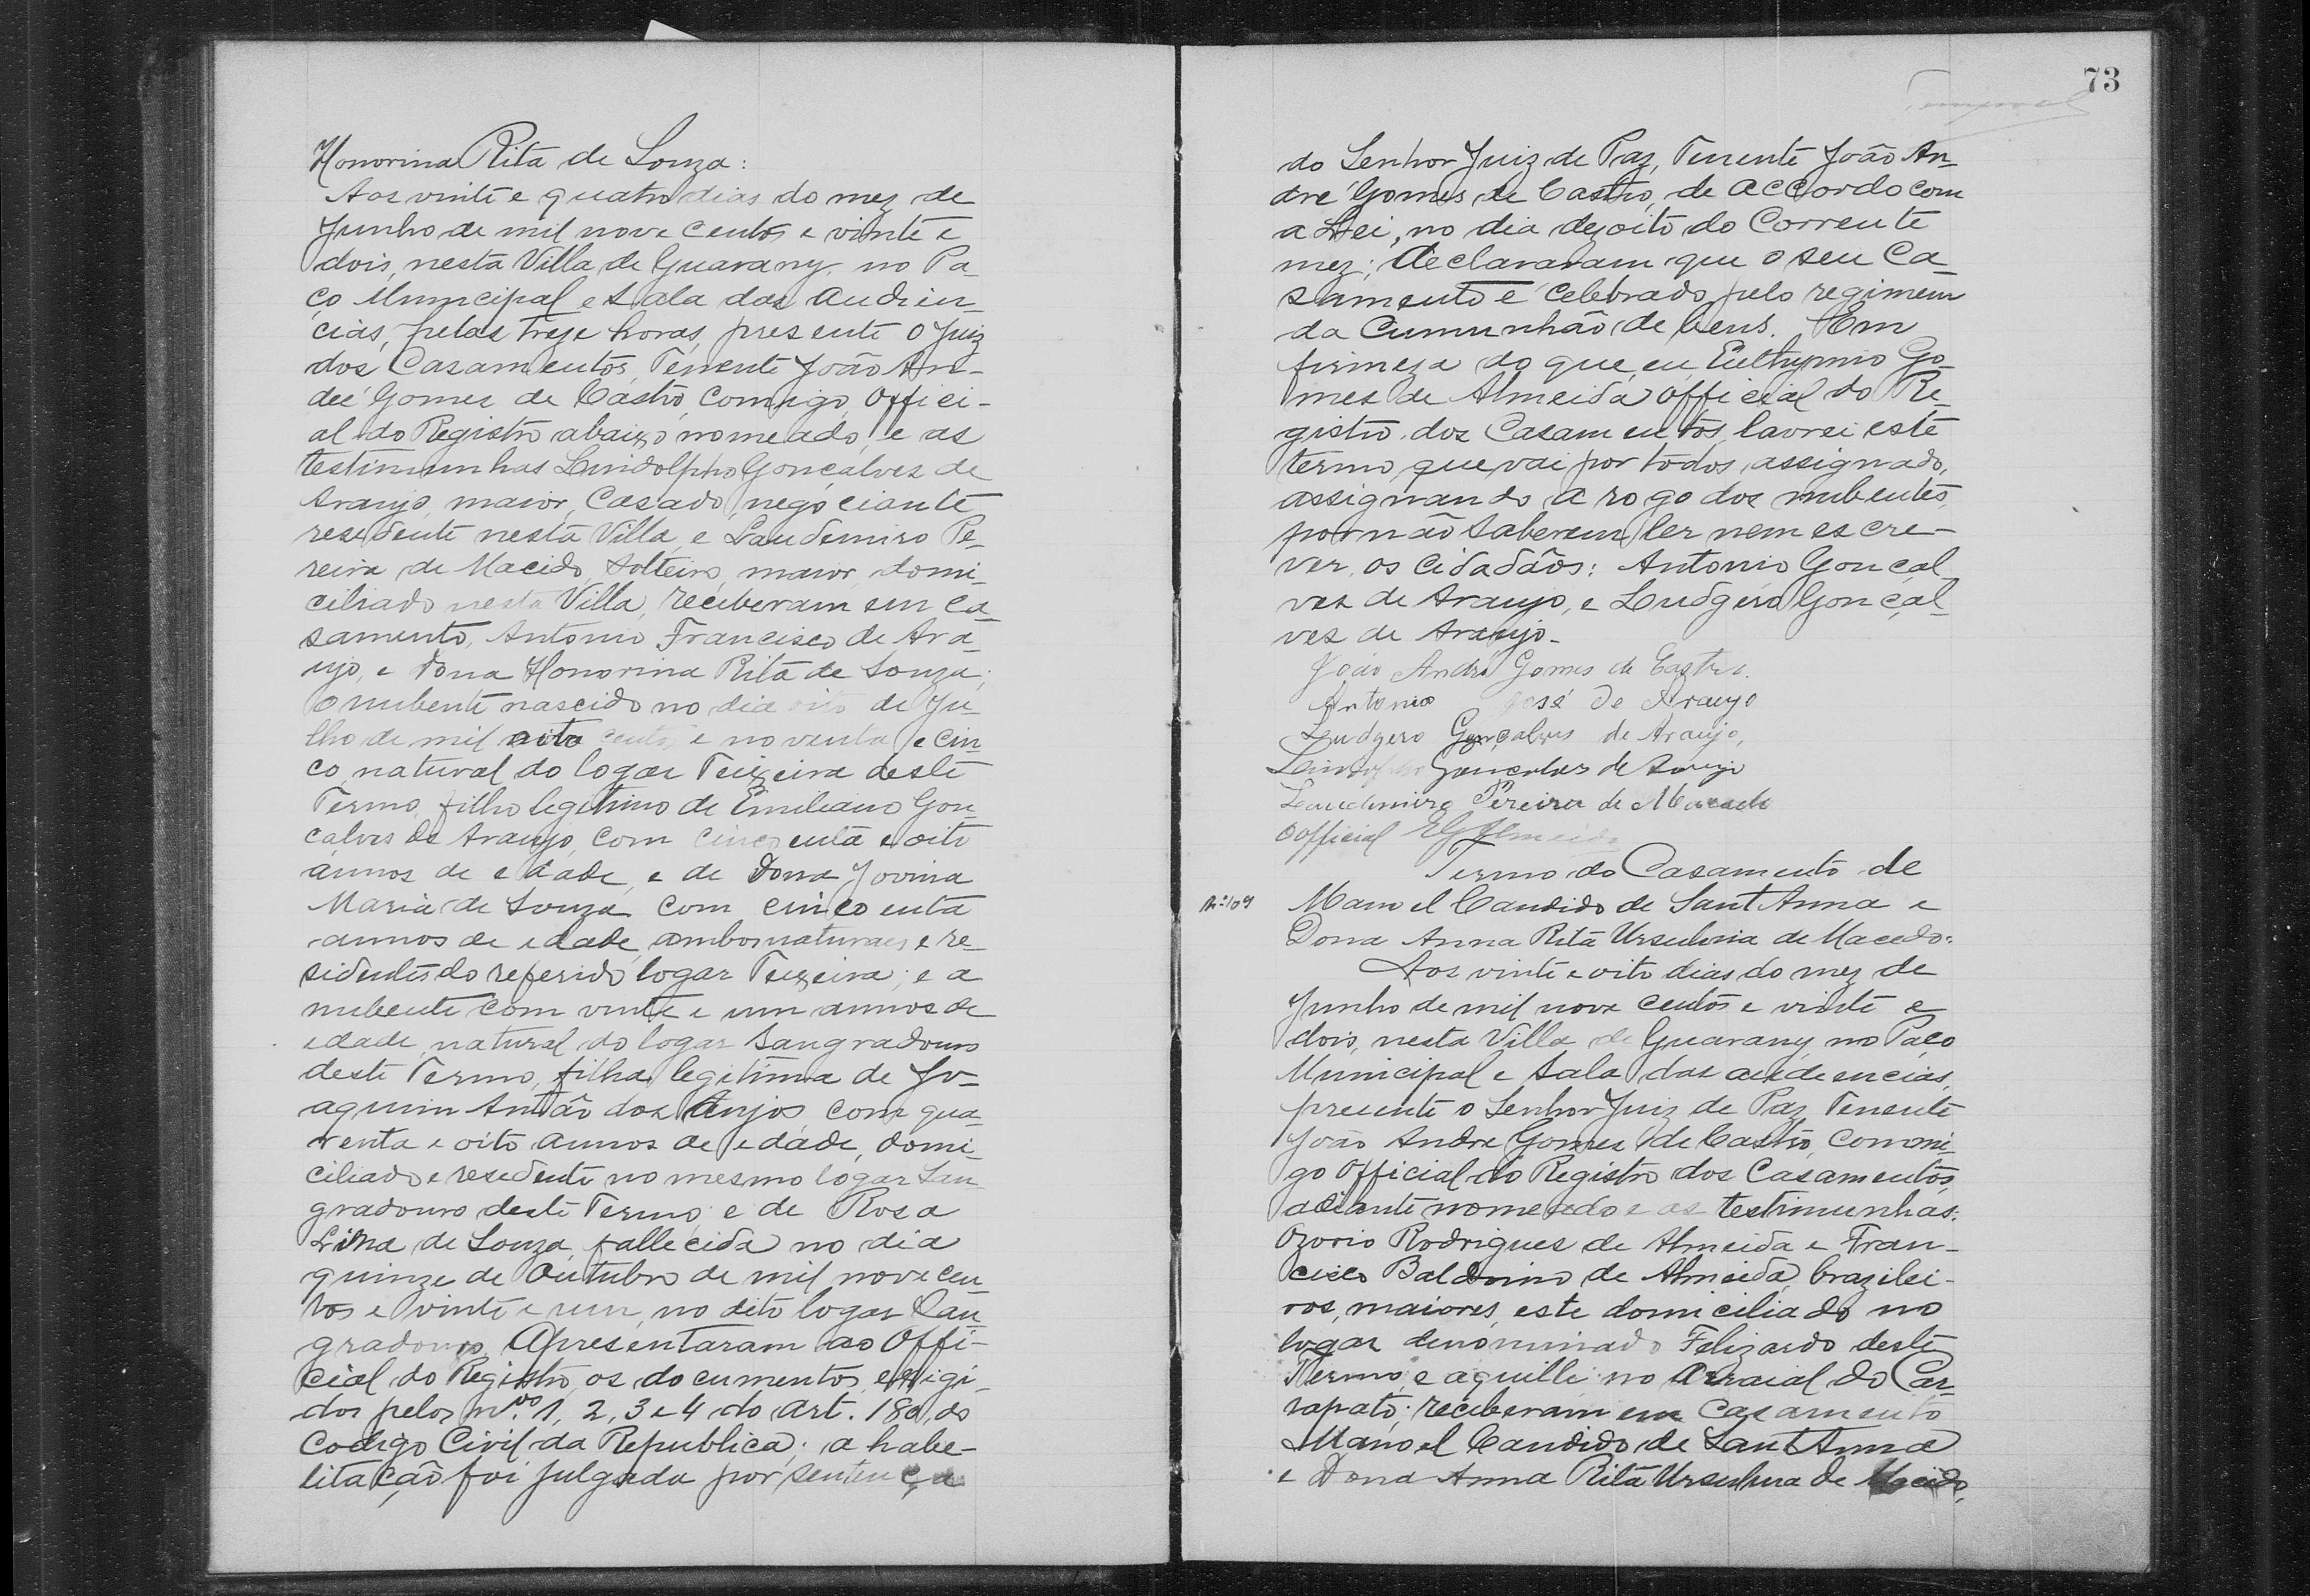 Honorina Rita de Souza:
Aos vinte e quatro dias do mez de
Junho de mil nove centos e vinte e
dois, nesta Villa de Guarany, no Pa-
ço Municipal e Sala das Audien-
cias, pelas treze horas, presente o Juiz
dos Casamentos, Tenente João An-
dré Gomes de Castro, commigo, Offici-
al do Registro abaixo nomeado, e as
testimunhas Lindolpho Gonçalves de
Araujo, maior, Casado, negociante
residente nesta Villa, e Laudemiro Pe-
reira de Macedo, Solteiro, maior, domi-
ciliado nesta Villa, receberam em Ca-
samento, Antonio Francisco de Ara-
ujo, e Dona Honorina Rita de Souza;
O nubente nascido no dia oito de Ju-
lho de mil oito centos e noventa e cin-
co, natural do logar Teixeira deste
Termo, filho legitimo de Emiliano Gon-
çalves de Araujo, com cincoenta e oito
annos de edade, e de Dona Jovina
Maria de Souza com cincoenta
annos de edade, ambos naturaes e re-
sidentes do referido logar Teixeira; e a
nubente com vinte e um annos de
edade, natural do logar Sangradouro
deste Termo, filha legitima de Jo-
aquim Antão dos Anjos, com qua-
renta e oito annos de edade, domi-
ciliado e residente no mesmo logar San-
gradouro deste Termo, e de Rosa
Lina de Souza, fallecida no dia
quinze de Outubro de mil nove cen-
tos e vinte e um, no dito logar San-
gradouro. Apresentaram ao Offi-
cial do Registro, os documentos exigi-
dos pelos nºs 1, 2, 3 e 4 do Art. 180, do
Codigo Civil da Republica; a habe-
litação foi julgada por sentença
73
do Senhor Juiz de Paz, Tenente João An-
dré Gomes de Castro, de accordo com
a Lei, no dia dezoito do Corrente
mez; declararam que o seu Ca-
samento é celebrado pelo regimem
da Cumunhão de bens. Em
firmeza do que, eu, Euthymio Go-
mes de Almeida official do Re-
gistro dos Casamentos, lavrei este
termo que vai por todos assignado,
assignando a rogo dos nubentes,
por não saberem ler nem escre-
ver, os cidadãos: Antonio Gonçal-
ves de Araujo, e Ludgero Gonçal-
ves de Araujo.
João André Gomes de Castro.
Antonio José de Araujo
Ludgero Gonçalves de Araujo,
Lindolpho Gonçalves de Araujo
Laudimiro Pereira de Macedo
O official EGAlmeida
Termo do Casamento de
Nº 109 Manoel Candido de Sant Anna e
Dona Anna Rita Ursulina de Macedo:
Aos vinte e oito dias do mez de
Junho de mil nove centos e vinte e
dois, nesta Villa de Guarany, no Paço
Municipal e Sala das audiencias,
presente o Senhor Juiz de Paz, Tenente
João Andre Gomes de Castro, commi-
go Official do Registro dos Casamentos,
adiante nomeado e as testimunhas:
Ozorio Rodrigues de Almeida e Fran-
cisco Balduino de Almeida, brazilei-
ros, maiores, este domiciliado no
logar denominado Felizardo deste
Termo, e aquille no Arraial do Car-
rapato; receberam em Casamento
Manoel Candido de Sant Anna
e Dona Anna Rita Ursulina de Macedo,